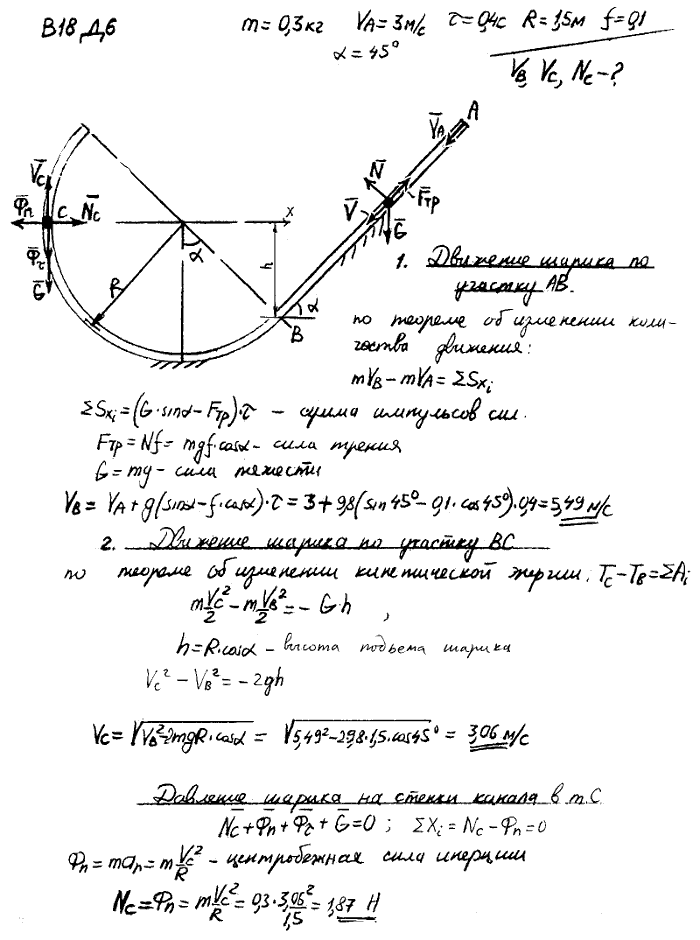 В18 Д6
m = 0,3 кг V_A = 3 м/с τ = 0,4с R = 1,5м f = 0,1
α = 45°
V_B, V_C, N_C - ?
A
V̄_A
N̄
F̄_тр
V̄
Ḡ
V̄_C
Φ̄_n C N̄_C
x
Φ̄_τ
Ḡ
α
h
R
α
B
1. Движение шарика по
участку AB.
по теореме об изменении коли-
чества движения:
mV_B - mV_A = ΣS_xi
ΣS_xi = (G·sinα - F_тр)·τ - сумма импульсов сил.
F_тр = Nf = mgf·cosα - сила трения
G = mg - сила тяжести
V_B = V_A + g(sinα - f·cosα)·τ = 3 + 9,8(sin45° - 0,1·cos45°)·0,4 = 5,49 м/с
2. Движение шарика по участку BC
по теореме об изменении кинетической энергии: T_C - T_B = ΣA_i
m V_C²/2 - m V_B²/2 = - G·h ,
h = R·cosα - высота подъема шарика
V_C² - V_B² = -2gh
V_C = √(V_B² - 2mgR·cosα) = √(5,49² - 2·9,8·1,5·cos45°) = 3,06 м/с
Давление шарика на стенки канала в т.C
N̄_C + Φ̄_n + Φ̄_τ + Ḡ = 0 ; ΣX_i = N_C - Φ_n = 0
Φ_n = ma_n = m V_C²/R - центробежная сила инерции
N_C = Φ_n = m V_C²/R = 0,3·3,06²/1,5 = 1,87 Н